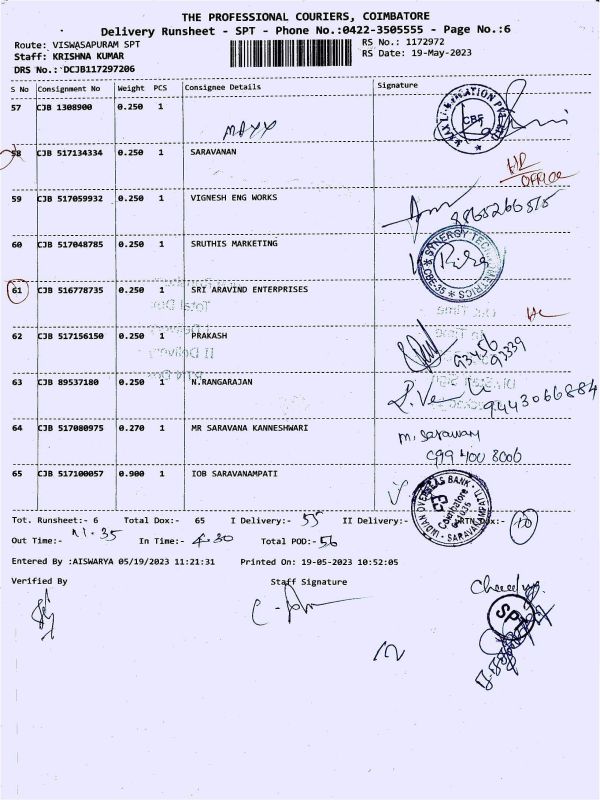 THE PROFESSIONAL COURIERS, COIMBATORE
Delivery Runsheet - SPT - Phone No.:0422-3505555 - Page No.:6
Route: VISWASAPURAM SPT
RS No.: 1172972
Staff: KRISHNA KUMAR
RS Date: 19-May-2023
DRS No.: DCJB117297206
S No Consignment No Weight PCS Consignee Details Signature
57 CJB 1308900 0.250 1
CBE
58 CJB 517134334 0.250 1 SARAVANAN
OFFICE
59 CJB 517059932 0.250 1 VIGNESH ENG WORKS
60 CJB 517048785 0.250 1 SRUTHIS MARKETING
SYNERGY
CBE-35
61 CJB 516778735 0.250 1 SRI ARAVIND ENTERPRISES
62 CJB 517156150 0.250 1 PRAKASH
93456
93339
63 CJB 89537180 0.250 1 N.RANGARAJAN
9443066884
64 CJB 517080975 0.270 1 MR SARAVANA KANNESHWARI
65 CJB 517100057 0.900 1 IOB SARAVANAMPATI
INDIAN OVERSEAS BANK
Coimbatore
641035
SARAVANAMPATTI
Tot. Runsheet:- 6 Total Dox:- 65 I Delivery:- 55 II Delivery:- RTN Dox:- 10
Out Time:- 11.35 In Time:- 4.30 Total POD:- 56
Entered By :AISWARYA 05/19/2023 11:21:31 Printed On: 19-05-2023 10:52:05
Verified By Staff Signature
SPT